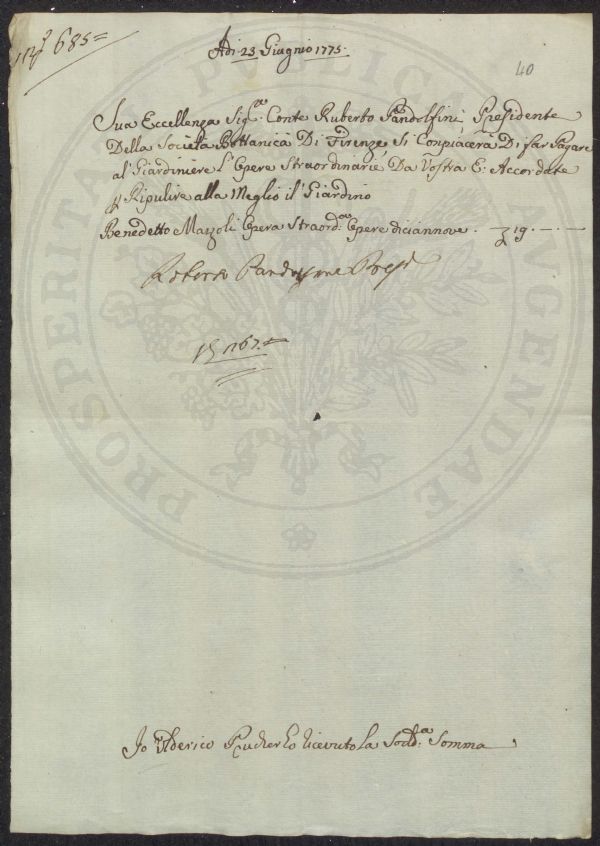 685=
Adi 23 Giugno 1775.
40
Sua Eccellenza Sig.ᵃ Conte Ruberto Pandolfini, Presidente
Della Società Bottanica Di Firenze, Si Conpiacerà Di far Pagare
al Giardiniere L'Opere Straordinarie Da Vostra E: Accordate
p Ripulire alla Meglio il Giardino
Benedetto Mazzoli Opera Straord.ᵃ Opere diciannove. — 19. — . —
Roberto Pandolfini Presid
Io Ulderico ho ricevuto la Sodd.ᵃ Somma
PROSPERITATI PUBLICAE AUGENDAE